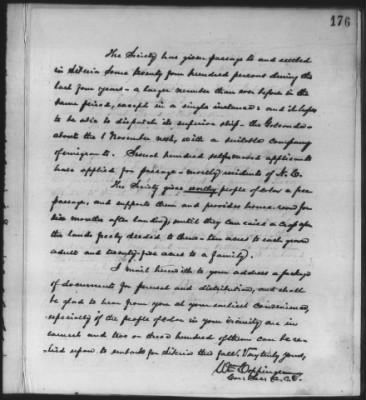 176
The Society has given passage to and settled
in Liberia some twenty four hundred persons during the
last four years - a larger number than ever before in the
same period, except in a single instance: and it hopes
to be able to dispatch its superior ship - the Golconda -
about the 1 November next, with a suitable company
of emigrants. Several hundred applicants
have applied for passage - mostly residents of N.C.
The Society gives worthy people of color a free
passage, and supports them and provides house-room for
six months after landing, until they can raise a crop upon
the lands freely deeded to them - ten acres to each grown
adult and twenty-five acres to a family.
I mail herewith to your address a package
of documents for perusal and distribution, and shall
be glad to hear from you at your earliest convenience,
especially if the people of color in your vicinity are in
earnest and two or three hundred of them can be re-
lied upon to embark for Liberia this fall. Very truly yours,
Wm Coppinger
Cor. Sec. A.C.S.